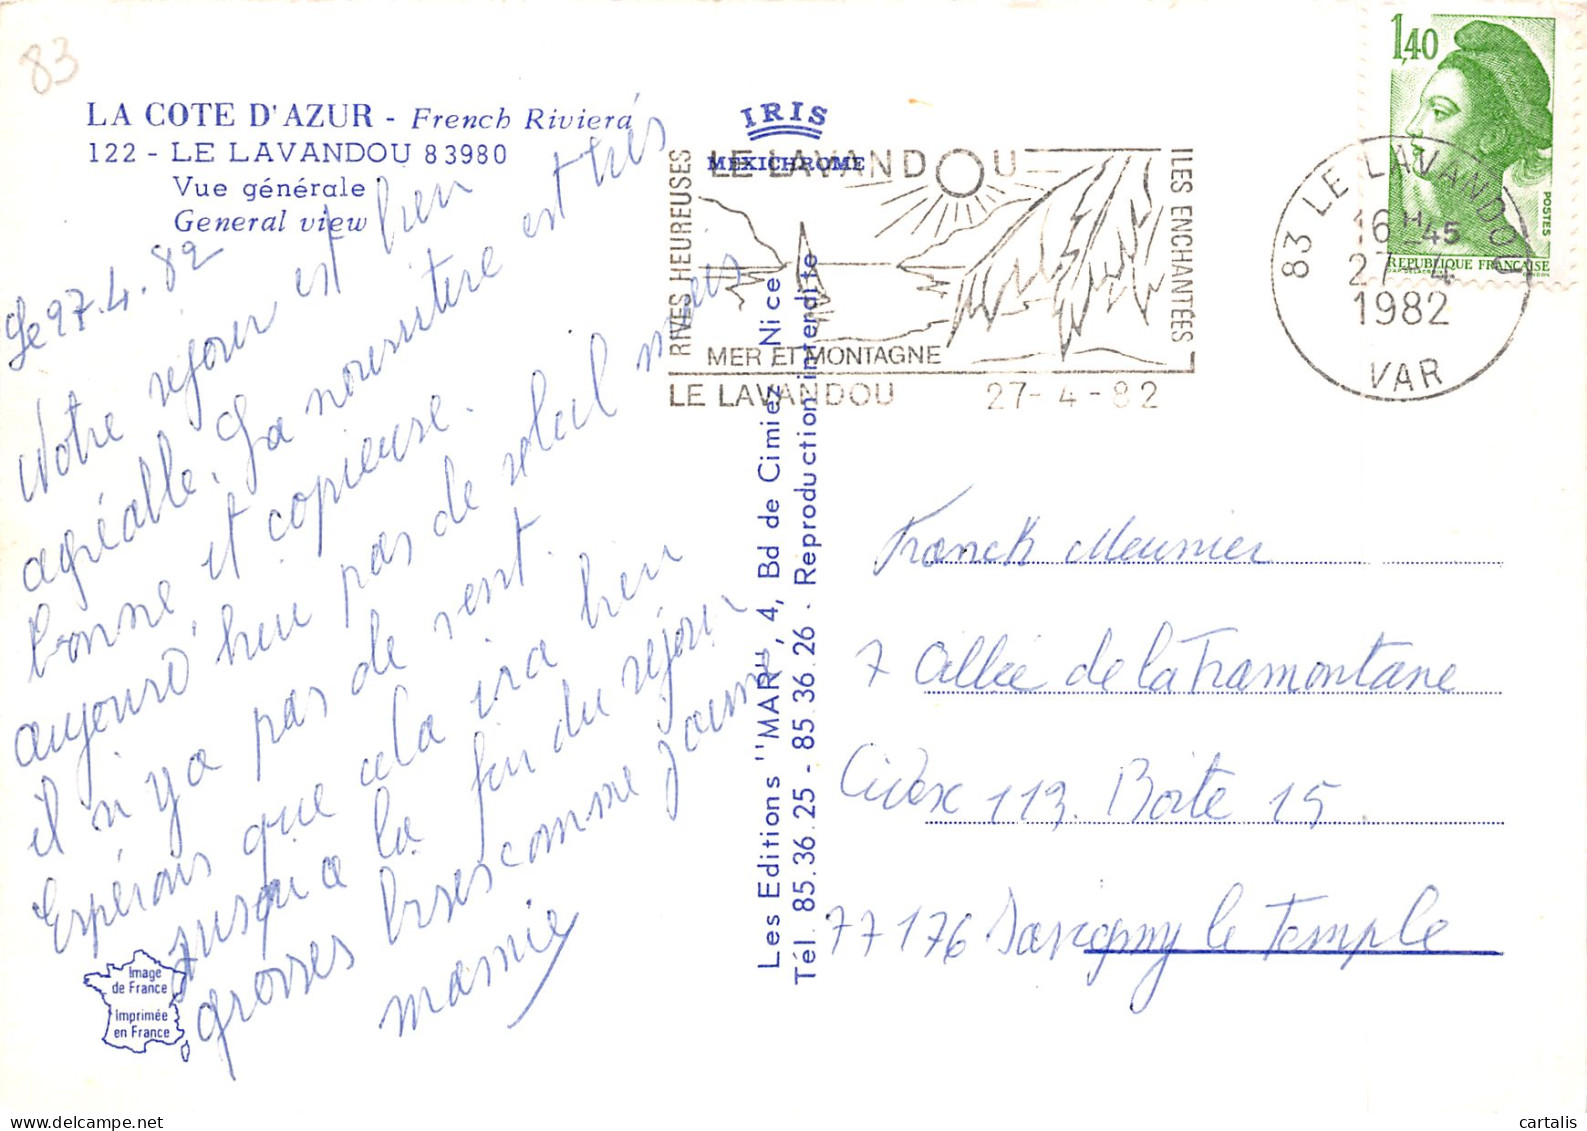 83
LA COTE D'AZUR - French Riviera
122 - LE LAVANDOU 83980
Vue générale
General view
IRIS
MEXICHROME
LE LAVANDOU
RIVES HEUREUSES
ILES ENCHANTÉES
MER ET MONTAGNE
LE LAVANDOU 27-4-82
1,40
POSTES
REPUBLIQUE FRANÇAISE
83 LE LAVANDOU
16H45
27-4
1982
VAR
Le 27.4.82
Notre séjour est bien
agréable. La nourriture est très
bonne et copieuse.
aujourd'hui pas de soleil mais
il n'y a pas de vent.
Espérons que cela ira bien
jusqu'a la fin du séjour
grosses bises comme j'aime
mamie
Image
de France
Imprimée
en France
Les Editions "MAR", 4, Bd de Cimiez, Nice
Tél. 85.36.25 - 85.36.26 · Reproduction interdite
Franck Meunier
7 Allée de la Tramontane
Cidex 113. Boite 15
77176 Savigny le Temple
cartalis
delcampe.net